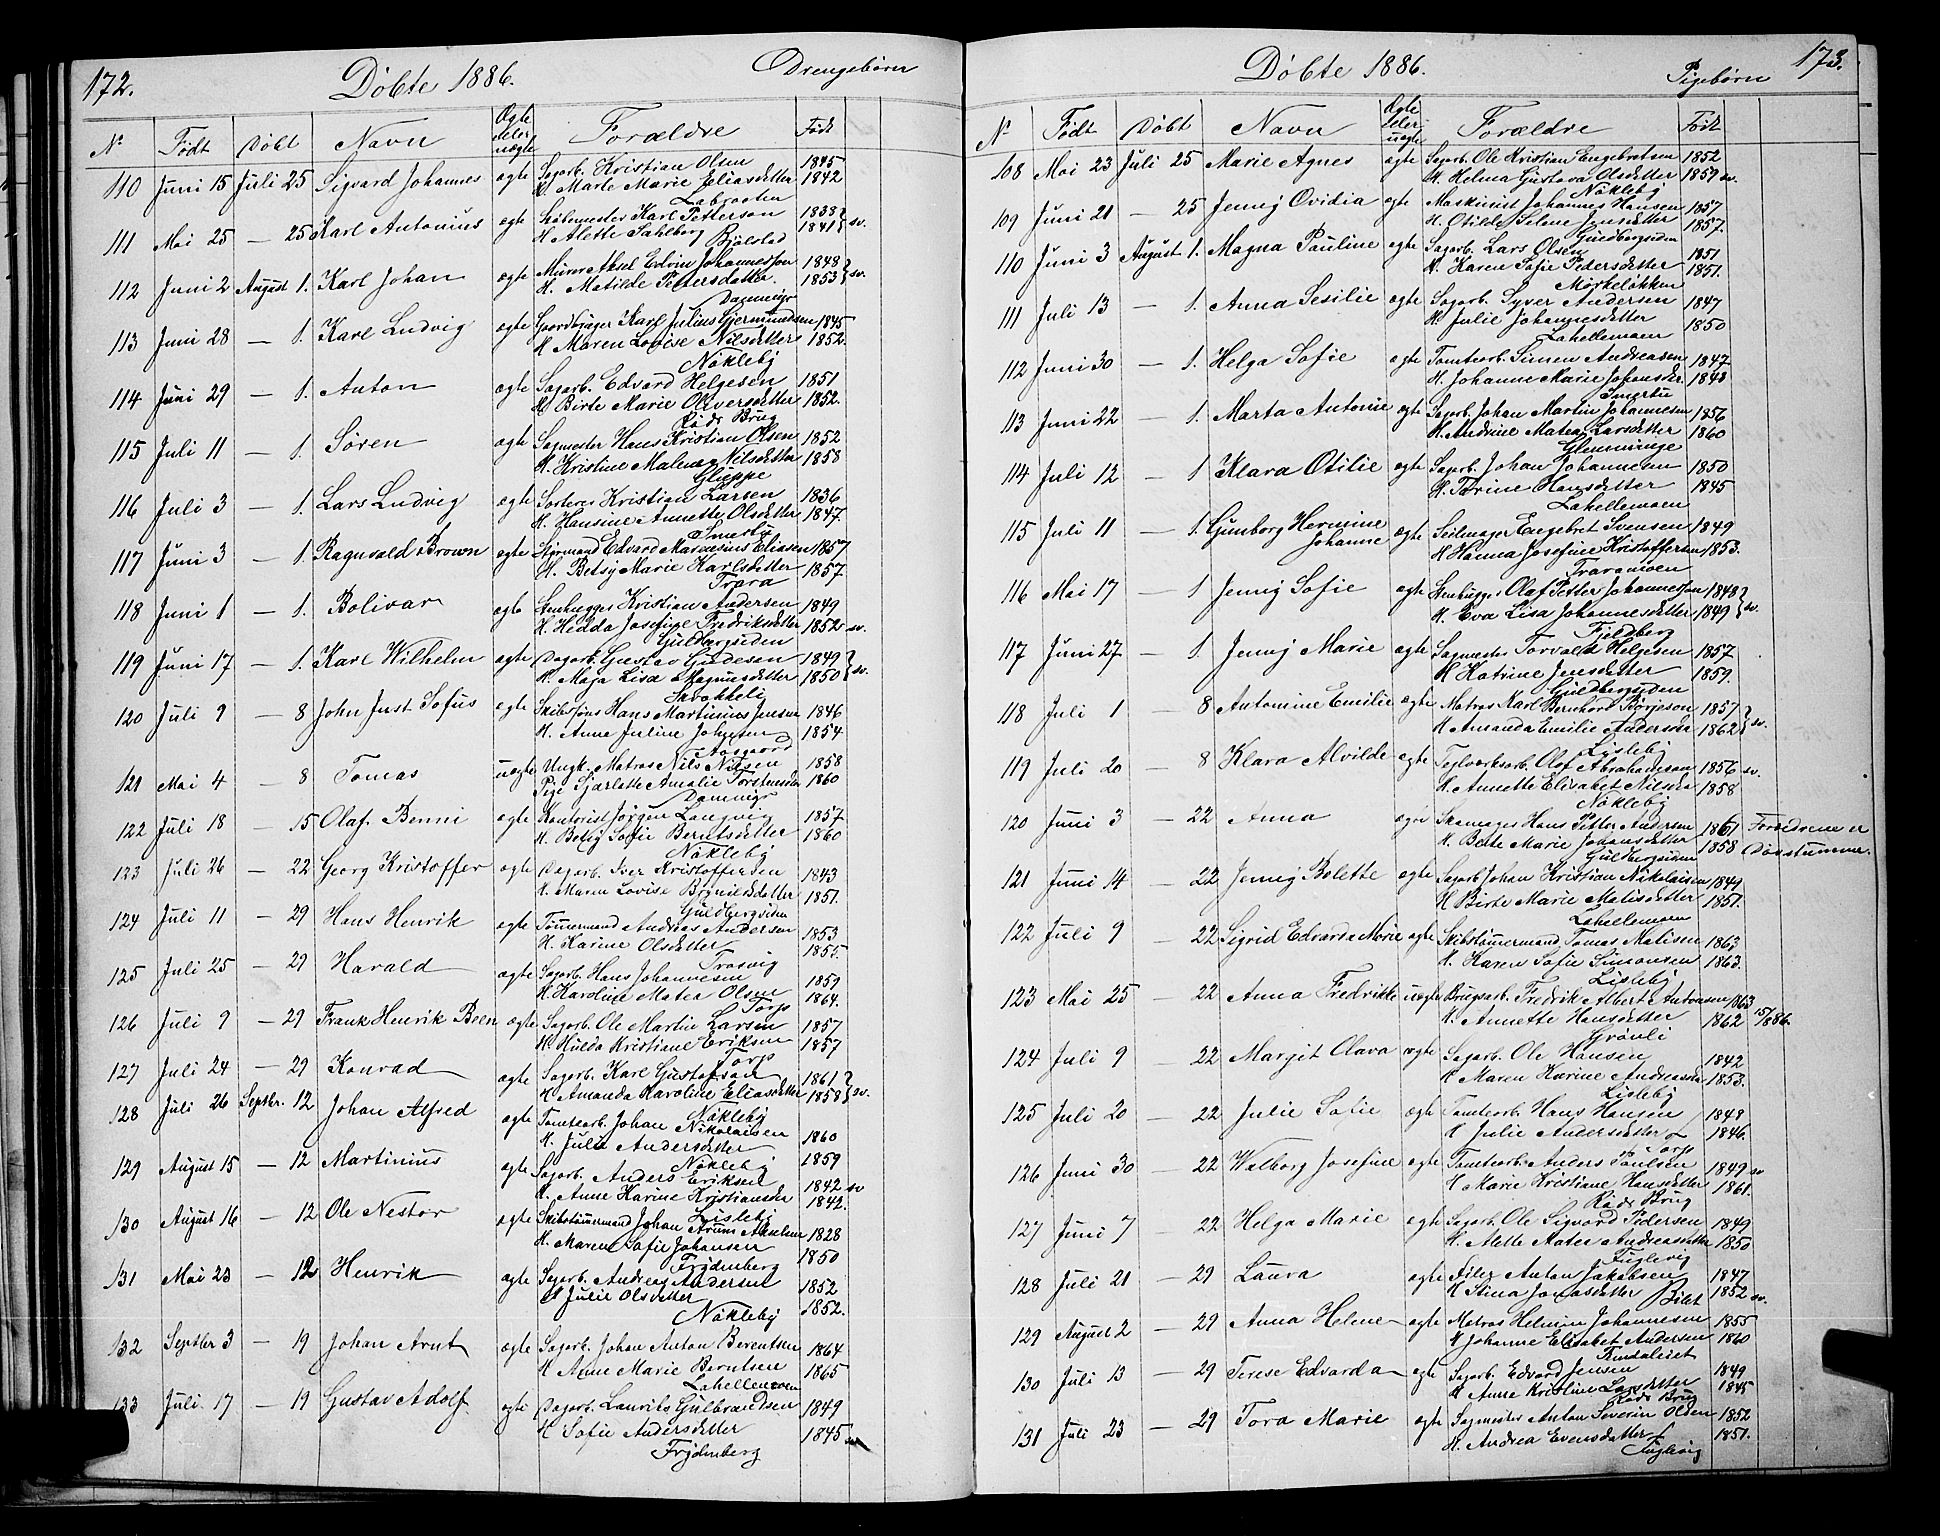 172.
Döbte 1886.
Drengebörn
No Födt Döbt Navn Ægte eller uægte Forældre Födt
110 Juni 15 Juli 25 Sigvard Johannes ægte Sagarb. Kristian Olsen 1845
H. Marte Marie Eliasdatter 1842
Labraaten
111 Mai 25 — 25 Karl Antonius ægte Karl Petterson 1838
H. Alette Sahlberg 1841 sv.
Bjölstad
112 Juni 2 August 1. Karl Johan ægte Murer Aksel Edvin Johannesson 1848
H. Matilde Pettersdatter 1853 sv.
Damnigr
113 Juni 28 — 1. Karl Ludvig ægte Gaardbruger Karl Julius Gjermundsen 1845
H. Maren Lovise Nilsdatter 1852.
Nökleby
114 Juni 29 — 1. Anton ægte Sagarb. Edvard Helgesen 1851
H. Birte Marie Oliversdatter 1852.
Röds Brug
115 Juli 11 — 1. Sören ægte Sagmester Hans Kristian Olsen 1852
H. Kristine Malena Nilsdatter 1858
Gluppe
116 Juli 3 — 1. Lars Ludvig ægte Sorterer Kristian Larsen 1836
H. Hansine Annette Olsdatter 1847.
Smertu
117 Juni 3 — 1. Ragnvald Brown ægte Styrmand Edvard Marensius Eliasen 1857
H. Betsy Marie Karlsdatter 1857
Trara
118 Juni 1 — 1. Bolivar ægte Stenhugger Kristian Andersen 1849
H. Hedda Josefine Fredriksdatter 1852 sv.
Guldbergsiden
119 Juni 17 — 1. Karl Wilhelm ægte Dagarb. Gustav Gudesen 1849
H. Maja Lisa Magnusdatter 1850 sv.
Skrokkeli
120 Juli 9 — 8 John Just Sofus ægte Skibsförer Hans Martinius Jensen 1846
H. Anne Juline Johnsen 1854
Aasgaard
121 Mai 4 — 8 Tomas uægte Ungk. Matros Nils Nilsen 1858
Pige Sjarlotte Amalie Torstensda 1860
Damnigr
122 Juli 18 — 15 Olaf Benni ægte Kontorist Jörgen Langvig 1857
H. Betsy Sofie Berntsdatter 1860
Nökleby
123 Juli 26 — 22 Georg Kristoffer ægte Dagarb. Iver Kristoffersen 1843
H. Maren Lovise Brynildsdatter 1851.
Guldbergsiden
124 Juli 11 — 29 Hans Henrik ægte Tömmermand Andreas Andersen 1853
H. Karine Olsdatter 1855.
Trosvig
125 Juli 25 — 29 Harald ægte Sagarb. Hans Johannesen 1859
H. Karoline Matea Olsen 1864.
Torp
126 Juli 9 — 29 Frank Henrik Been ægte Sagarb. Ole Martin Larsen 1857
H. Hulda Kristiane Eriksen 1857
Torp
127 Juli 24 — 29 Konrad ægte Sagarb. Karl Gustafsson 1861
H. Amanda Karoline Eliasdatter 1858 sv.
Nökleby
128 Juli 26 Septbr. 12 Johan Alfred ægte Tomtearb. Johan Nikolaisen 1860
H. Julia Andersdatter 1859
Nökleby
129 August 15 — 12 Martinius ægte Sagarb. Anders Eriksen 1842 sv
H. Anne Karine Kristiansda 1842.
Lisleby
130 August 16 — 12 Ole Nestor ægte Skibstömmermand Johan Arum Akselsen 1828
H. Maren Sofie Johansen 1850
Frydenberg
131 Mai 23 — 12 Henrik ægte Sagarb. Andreas Andersen 1852
H. Julie Olsdatter 1852.
Nökleby
132 Septbr 3 — 19 Johan Arnt ægte Sagarb. Johan Anton Berentsen 1864
H. Anne Marie Berntsen 1865
Lahellemoen
133 Juli 17 — 19 Gustav Adolf ægte Dagarb. Laurits Gulbrandsen 1849
H. Sofie Andersdatter 1845 sv.
Frydenberg
173.
Döbte 1886.
Pigebörn
No Födt Döbt Navn Ægte eller uægte Forældre Födt
108 Mai 23 Juli 25 Marie Agnes ægte Sagarb. Ole Kristian Engebretsen 1852
H. Helma Gustava Olsdatter 1859 sv.
Nökleby
109 Juni 21 — 25 Jenny Ovidia ægte Maskinist Johannes Hansen 1857
H. Otilde Selene Jensdatter 1857.
Guldbergsiden
110 Juni 3 August 1. Magna Pauline ægte Sagarb. Lars Olsen 1851
H. Karen Sofie Pedersdatter 1851.
Mörkelökken
111 Juli 13 — 1. Anna Sesilie ægte Sagarb. Syver Andersen 1847
H. Julie Johannesdatter 1850
Lahellemoen
112 Juni 30 — 1. Helga Sofie ægte Tomtearb. Simen Andreasen 1847
H. Johanne Marie Johansdr. 1848
Smertu
113 Juni 22 — 1. Marta Antonie ægte Sagarb. Johan Martin Johannesen 1856
H. Andrine Matea Larsdatter 1860
Glemminge
114 Juli 12 — 1 Klara Otilie ægte Sagarb. Johan Johannesen 1850
H. Torine Hansdatter 1845
Lahellemoen
115 Juli 11 — 1. Gunborg Hermine Johanne ægte Seilmager Engebret Svensen 1849
H. Hanna Josefine Kristoffersen 1853.
Traramoen
116 Mai 17 — 1 Jenny Sofie ægte Stenhugger Olaf Petter Johannesson 1848
H. Eva Lisa Johannesdatter 1849 sv.
Fjeldberg
117 Juni 27 — 1. Jenny Marie ægte Sagmester Torvald Helgesen 1857
H. Katrine Jensdatter 1859.
Guldbergsiden
118 Juli 1 — 8 Antonine Emilie ægte Matros Karl Bernhard Börjeson 1857
H. Amanda Emilie Andersen 1862 sv.
Lisleby
119 Juli 20 — 8 Klara Alvilde ægte Teglverksarb. Olof Abrahamsson 1856 sv.
H. Annette Elisabet Nilsda 1858
Nökleby
120 Juni 3 — 22 Anna ægte Skomager Hans Petter Andersen 1861 Forældrene er
H. Berte Marie Johansdatter 1858 Dövstumme.
Guldbergsiden
121 Juni 14 — 22 Jenny Bolette ægte Sagarb. Johan Kristian Nikolaisen 1849
H. Birte Marie Matisdatter 1851.
Lahellemoen
122 Juli 9 — 22 Sigrid Edvarda Marie ægte Skibstömmermand Tomas Matisen 1863
H. Karen Sofie Simonsen 1863.
Lisleby
123 Mai 25 — 22 Anna Fredrikke uægte Brugsarb. Fredrik Albert Antonsen 1863
H. Annette Hansdatter 1862 15/886.
Grönli
124 Juli 9 — 22 Margit Olava ægte Sagarb. Ole Hansen 1842
H. Maren Karine Andreasda 1853.
Lisleby
125 Juli 20 — 22 Julie Sofie ægte Tomtearb. Hans Hansen 1848
H. Julie Andersdatter 1846.
Torp
126 Juni 30 — 22 Walborg Josefine ægte Tomtearb. Anders Paulsen 1849 sv
H. Marie Kristiane Hansdatter 1861.
Röds Brug
127 Juni 7 — 22 Helga Marie ægte Sagarb. Ole Sigvard Pedersen 1849
H. Alette Matea Andreasdatter 1850
Fuglevig
128 Juli 21 — 29 Laura ægte Föler Anton Jakobsen 1847
H. Stina Jonasdatter 1852 sv.
Bilet
129 August 2 — 29 Anna Helene ægte Matros Helmin Johannesen 1855
H. Johanne Elisabet Andersen 1860
130 Juli 13 — 29 Terese Edvarda ægte Sagarb. Edvard Jensen 1849
H. Anne Kristine Larsdatter 1845
Röds Brug
131 Juli 23 — 29 Tora Marie ægte Sagmester Anton Severin Olsen 1852
H. Andrea Evensdatter 1851.
Fuglevig